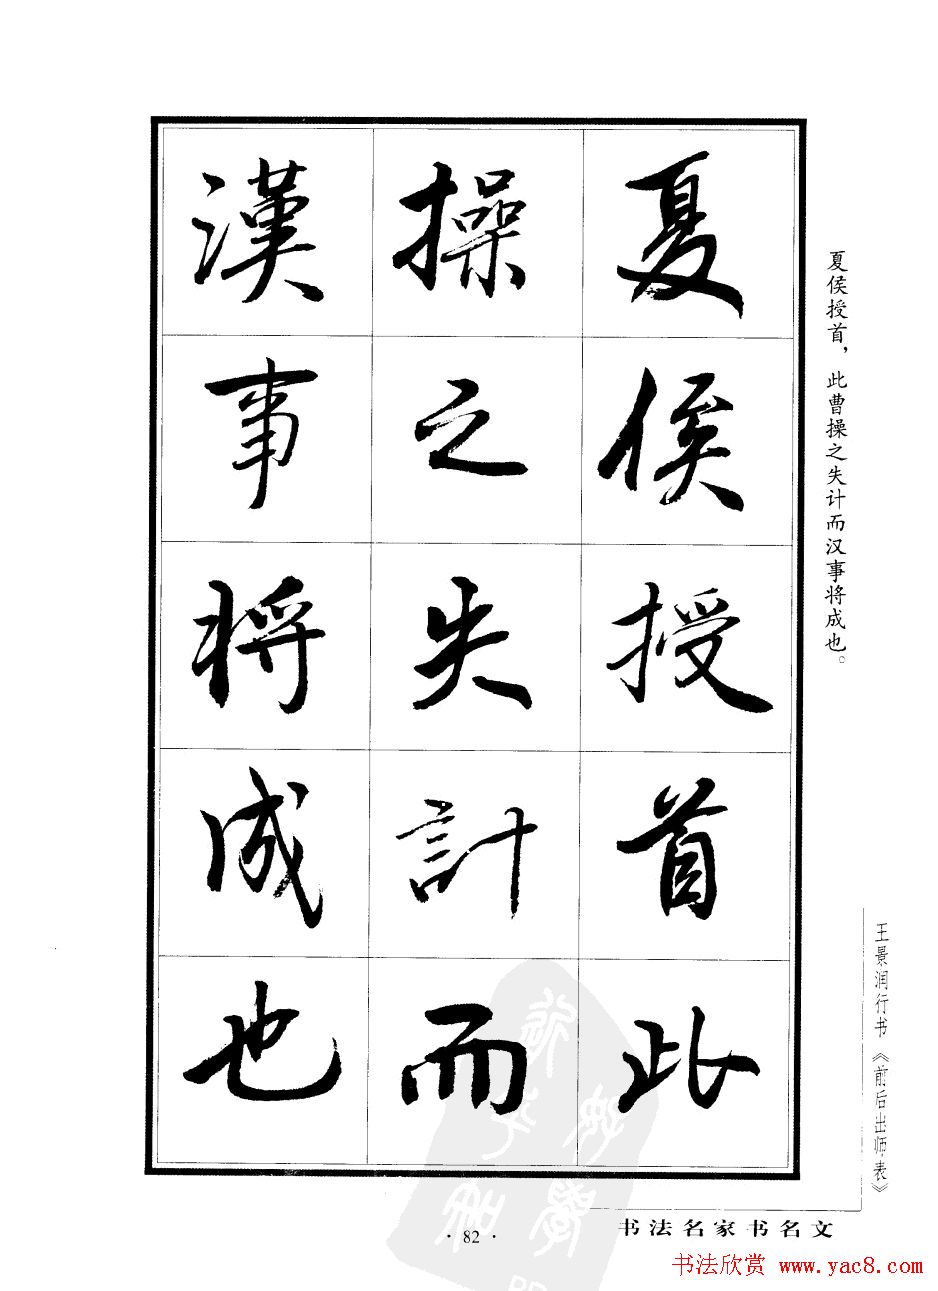 夏侯授首此
操之失計而
漢事将成也
夏侯授首，此曹操之失计而汉事将成也。
王景润行书《前后出师表》
书法名家书名文
·82·
书法欣赏 www.yac8.com